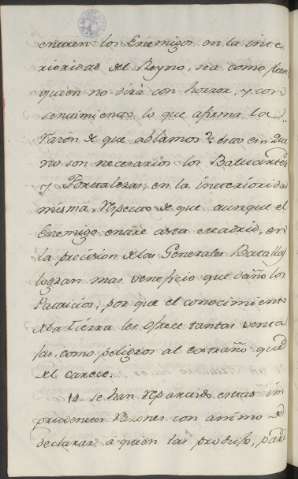 entraren los Enemigos en la inte-
rioridad del Reyno, sea como fuere
quien no oirà con horror, y con
sentimiento, lo que afirma la
razón de que ablamos
no son necesarios los Baluartes
y Fortalezas en la interioridad
misma, respecto de que aunque el
Enemigo entre asta Madrid, en
la precision de las Generales Batallas
logran mas veneficio que daño los
Patricios, por que el conocimiento
de la tierra les ofrece tantas venta
jas, como peligros al extraño que
de el carece.
12 Se han reparado estas im
prudentes razones con animo de
declarar à quien las produjo, para